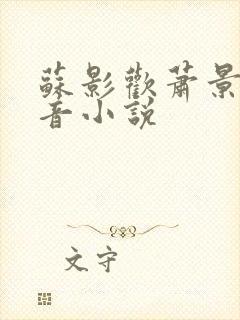 蘇影歡蕭景
音小說
文守